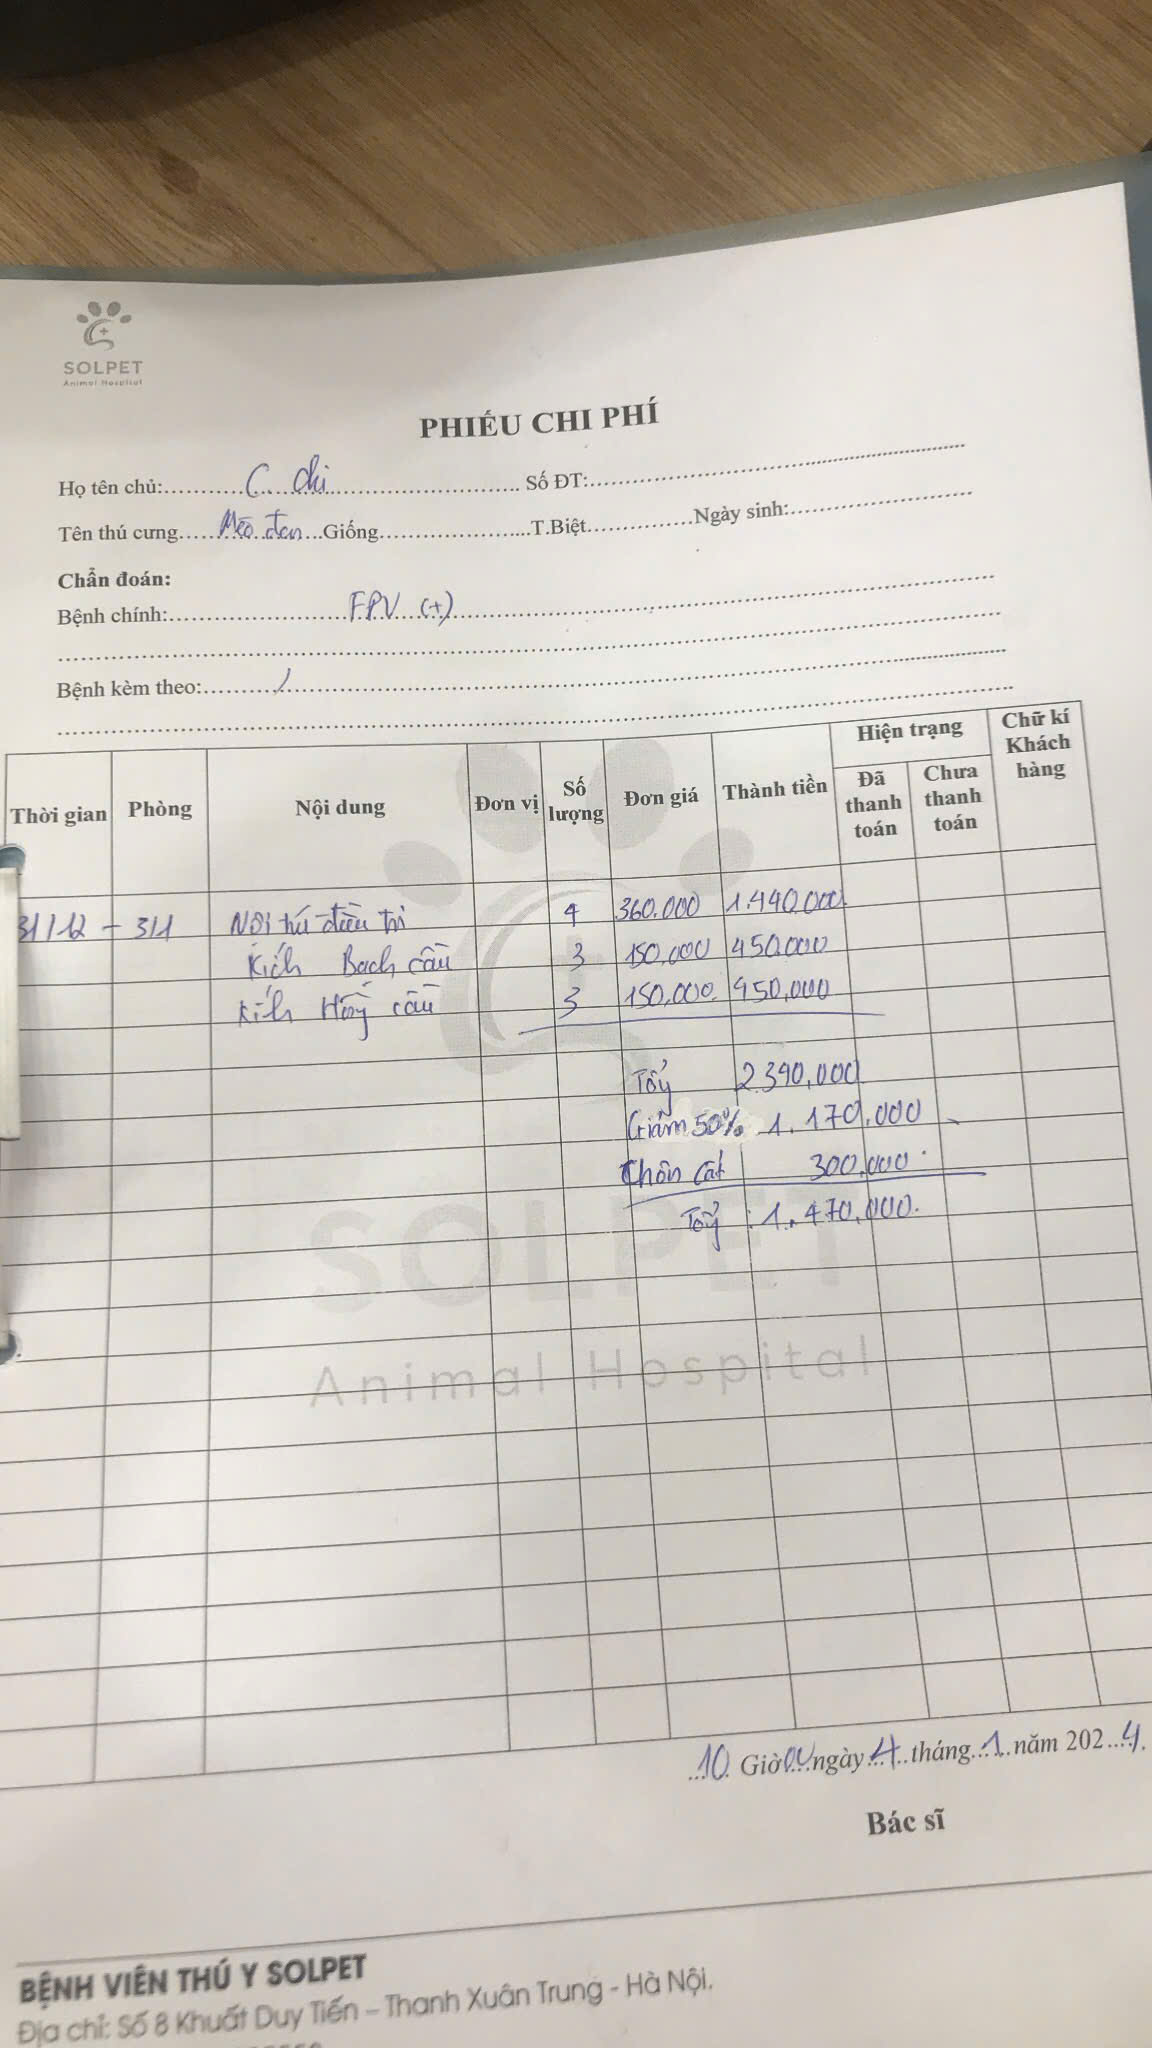 SOLPET
Animal Hospital
PHIẾU CHI PHÍ
Họ tên chủ: C. Chi Số ĐT:
Tên thú cưng Mèo đen Giống T.Biệt Ngày sinh:
Chẩn đoán:
Bệnh chính: FPV (+)
Bệnh kèm theo: /
Thời gian Phòng Nội dung Đơn vị Số lượng Đơn giá Thành tiền Hiện trạng Đã thanh toán Chưa thanh toán Chữ kí Khách hàng
31/12 - 3/1 Nội trú điều trị 4 360.000 1.440.000
Kích Bạch cầu 3 150.000 450.000
Kích Hồng cầu 3 150.000. 450,000
Tổng 2.340,000
Giảm 50% 1.170.000
Chôn cất 300,000.
Tổng : 1.470,000.
SOLPET
Animal Hospital
10 Giờ 00 ngày 4 tháng 1 năm 2024.
Bác sĩ
BỆNH VIÊN THÚ Y SOLPET
Địa chỉ: Số 8 Khuất Duy Tiến – Thanh Xuân Trung - Hà Nội.